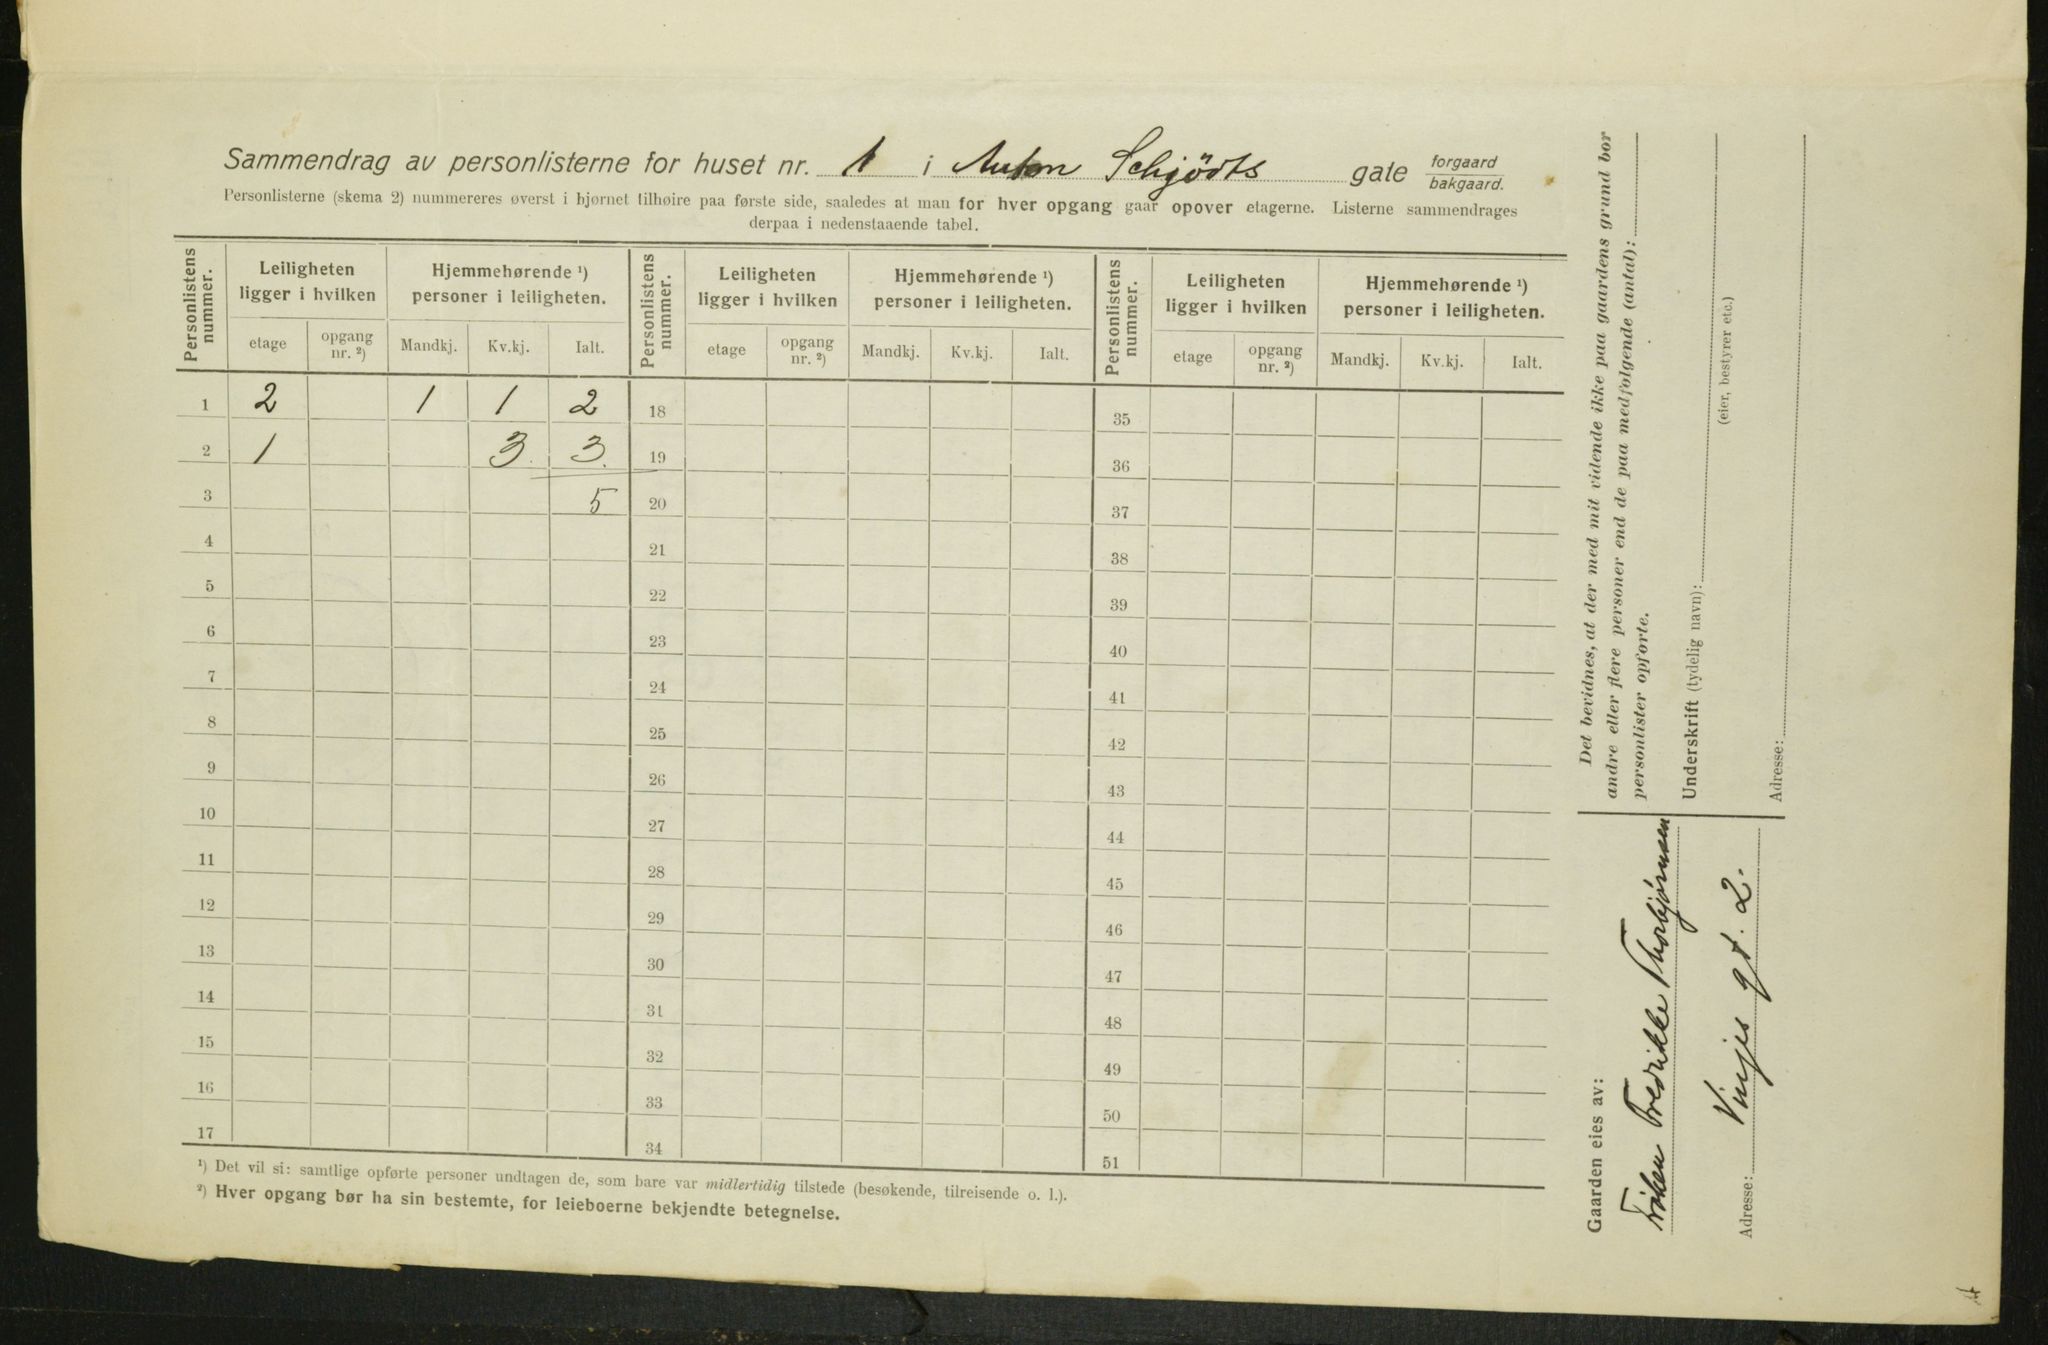 Sammendrag av personlisterne for huset nr. 1 i Anton Schjödts gate forgaard bakgaard.
Personlisterne (skema 2) nummereres øverst i hjørnet tilhøire paa første side, saaledes at man for hver opgang gaar opover etagerne. Listerne sammendrages
derpaa i nedenstaaende tabel.
Personlistens nummer. Leiligheten ligger i hvilken Hjemmehørende ¹) personer i leiligheten. Personlistens nummer. Leiligheten ligger i hvilken Hjemmehørende ¹) personer i leiligheten. Personlistens nummer. Leiligheten ligger i hvilken Hjemmehørende ¹) personer i leiligheten.
etage opgang nr. ²) Mandkj. Kv.kj. Ialt. etage opgang nr. ²) Mandkj. Kv.kj. Ialt. etage opgang nr. ²) Mandkj. Kv.kj. Ialt.
1 2 1 1 2 18 35
2 1 3. 3. 19 36
3 5 20 37
4 21 38
5 22 39
6 23 40
7 24 41
8 25 42
9 26 43
10 27 44
11 28 45
12 29 46
13 30 47
14 31 48
15 32 49
16 33 50
17 34 51
¹) Det vil si: samtlige opførte personer undtagen de, som bare var midlertidig tilstede (besøkende, tilreisende o. l.).
²) Hver opgang bør ha sin bestemte, for leieboerne bekjendte betegnelse.
Gaarden eies av:
Fröken Fredrikke Thorbjørnsen
Adresse: Vinjes gt. 2.
Det bevidnes, at der med mit vidende ikke paa gaardens grund bor
andre eller flere personer end de paa medfølgende (antal):
personlister opførte.
Underskrift (tydelig navn):
(eier, bestyrer etc.)
Adresse: